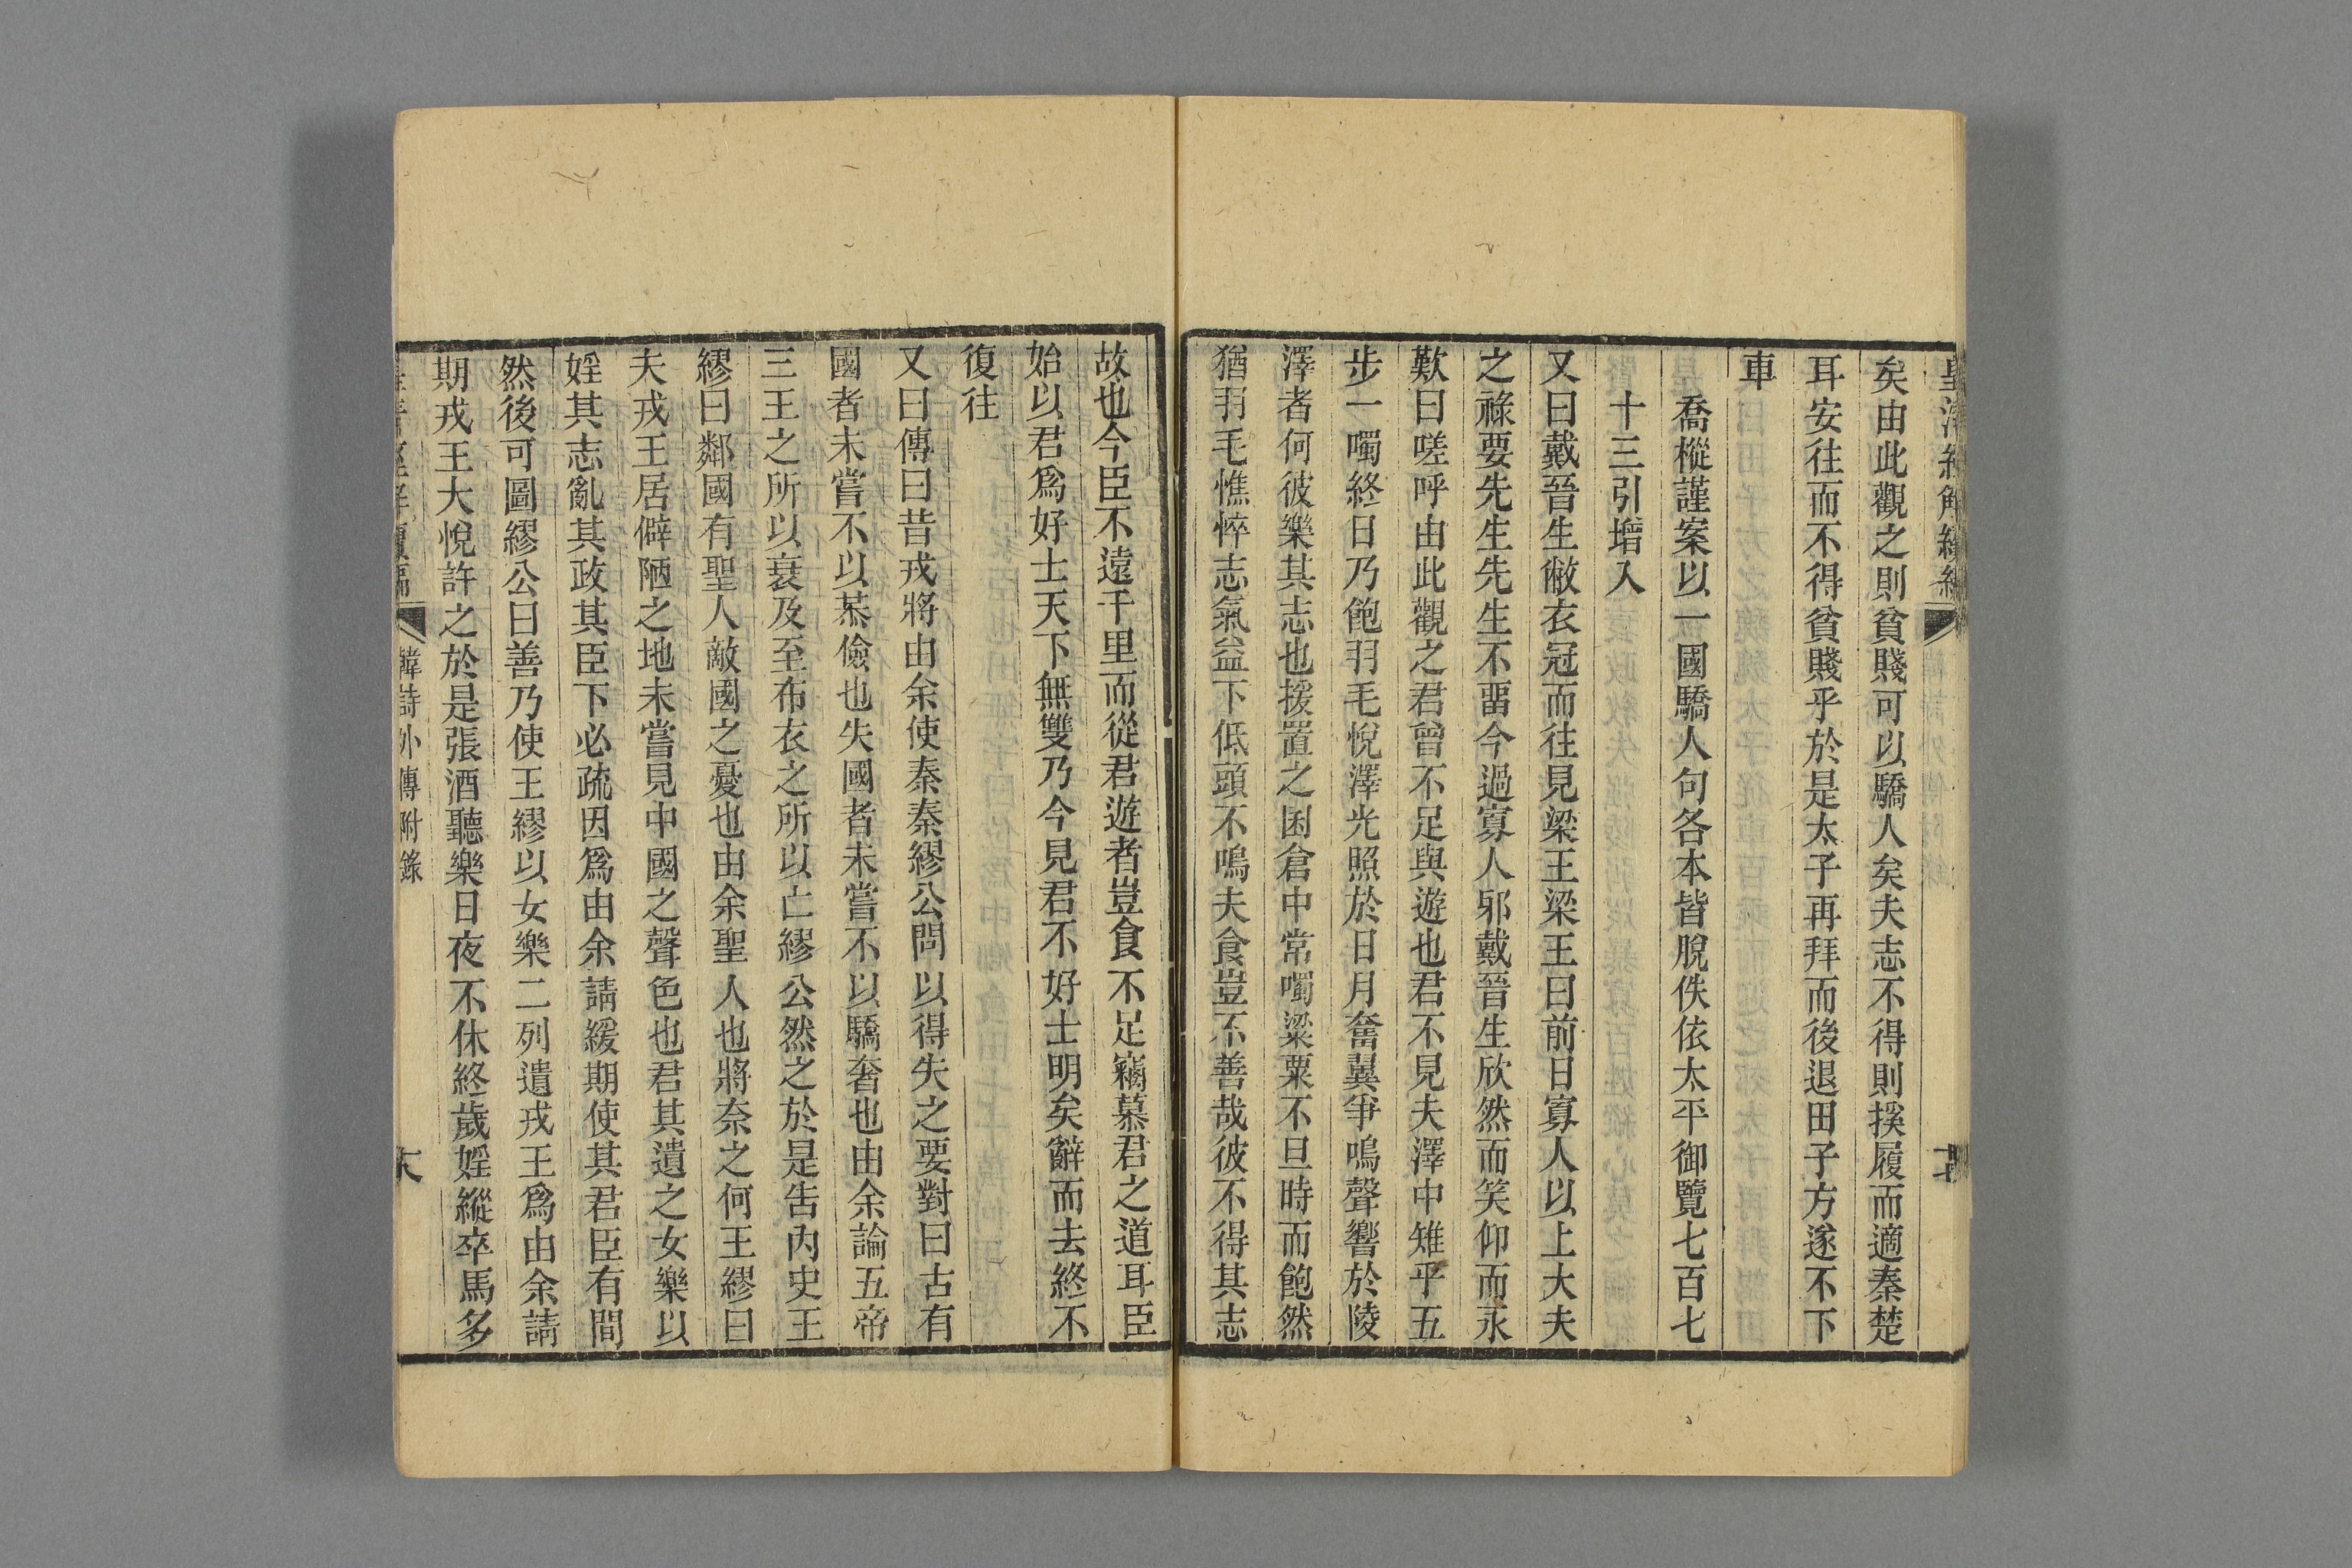 矣由此觀之則貧賤可以驕人矣夫志不得則授履而適秦楚
耳安往而不得貧賤乎於是太子再拜而後退田子方遂不下
車
喬樅謹案以一國驕人句各本皆脫佚依太平御覽七百七
十三引增入
又曰戴晉生敝衣冠而往見梁王梁王曰前日寡人以上大夫
之祿要先生先生不畱今過寡人邪戴晉生欣然而笑仰而永
歎曰嗟呼由此觀之君曾不足與遊也君不見夫澤中雉乎五
步一噣終日乃飽羽毛悅澤光照於日月奮翼爭鳴聲響於陵
澤者何彼樂其志也援置之囷倉中常噣粱粟不旦時而飽然
猶羽毛憔悴志氣益下低頭不鳴夫食豈不善哉彼不得其志
故也今臣不遠千里而從君遊者豈食不足竊慕君之道耳臣
始以君爲好士天下無雙乃今見君不好士明矣辭而去終不
復往
又曰傳曰昔戎將由余使秦秦繆公問以得失之要對曰古有
國者未嘗不以恭儉也失國者未嘗不以驕奢也由余論五帝
三王之所以衰及至布衣之所以亡繆公然之於是告內史王
繆曰鄰國有聖人敵國之憂也由余聖人也將奈之何王繆曰
夫戎王居僻陋之地未嘗見中國之聲色也君其遺之女樂以
婬其志亂其政其臣下必疏因爲由余請緩期使其君臣有間
然後可圖繆公曰善乃使王繆以女樂二列遺戎王爲由余請
期戎王大悅許之於是張酒聽樂日夜不休終歲婬縱卒馬多
韓詩外傳附錄